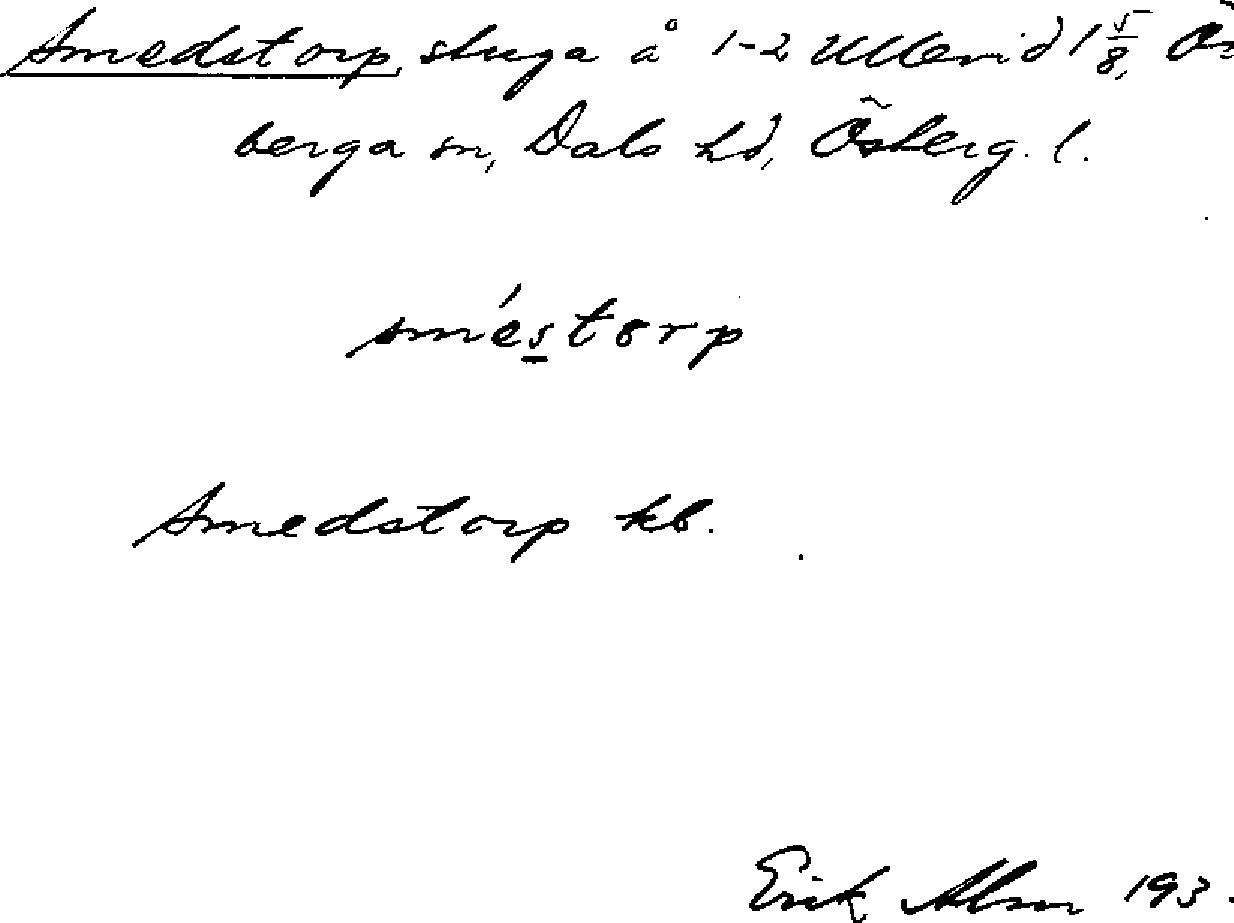 Smedstorp, stuga å 1-2 Ullevid 1 5/8, Ö
berga sn, Dals hd, Österg. l.
smés torp
Smedstorp kb.
Erik Abm 193